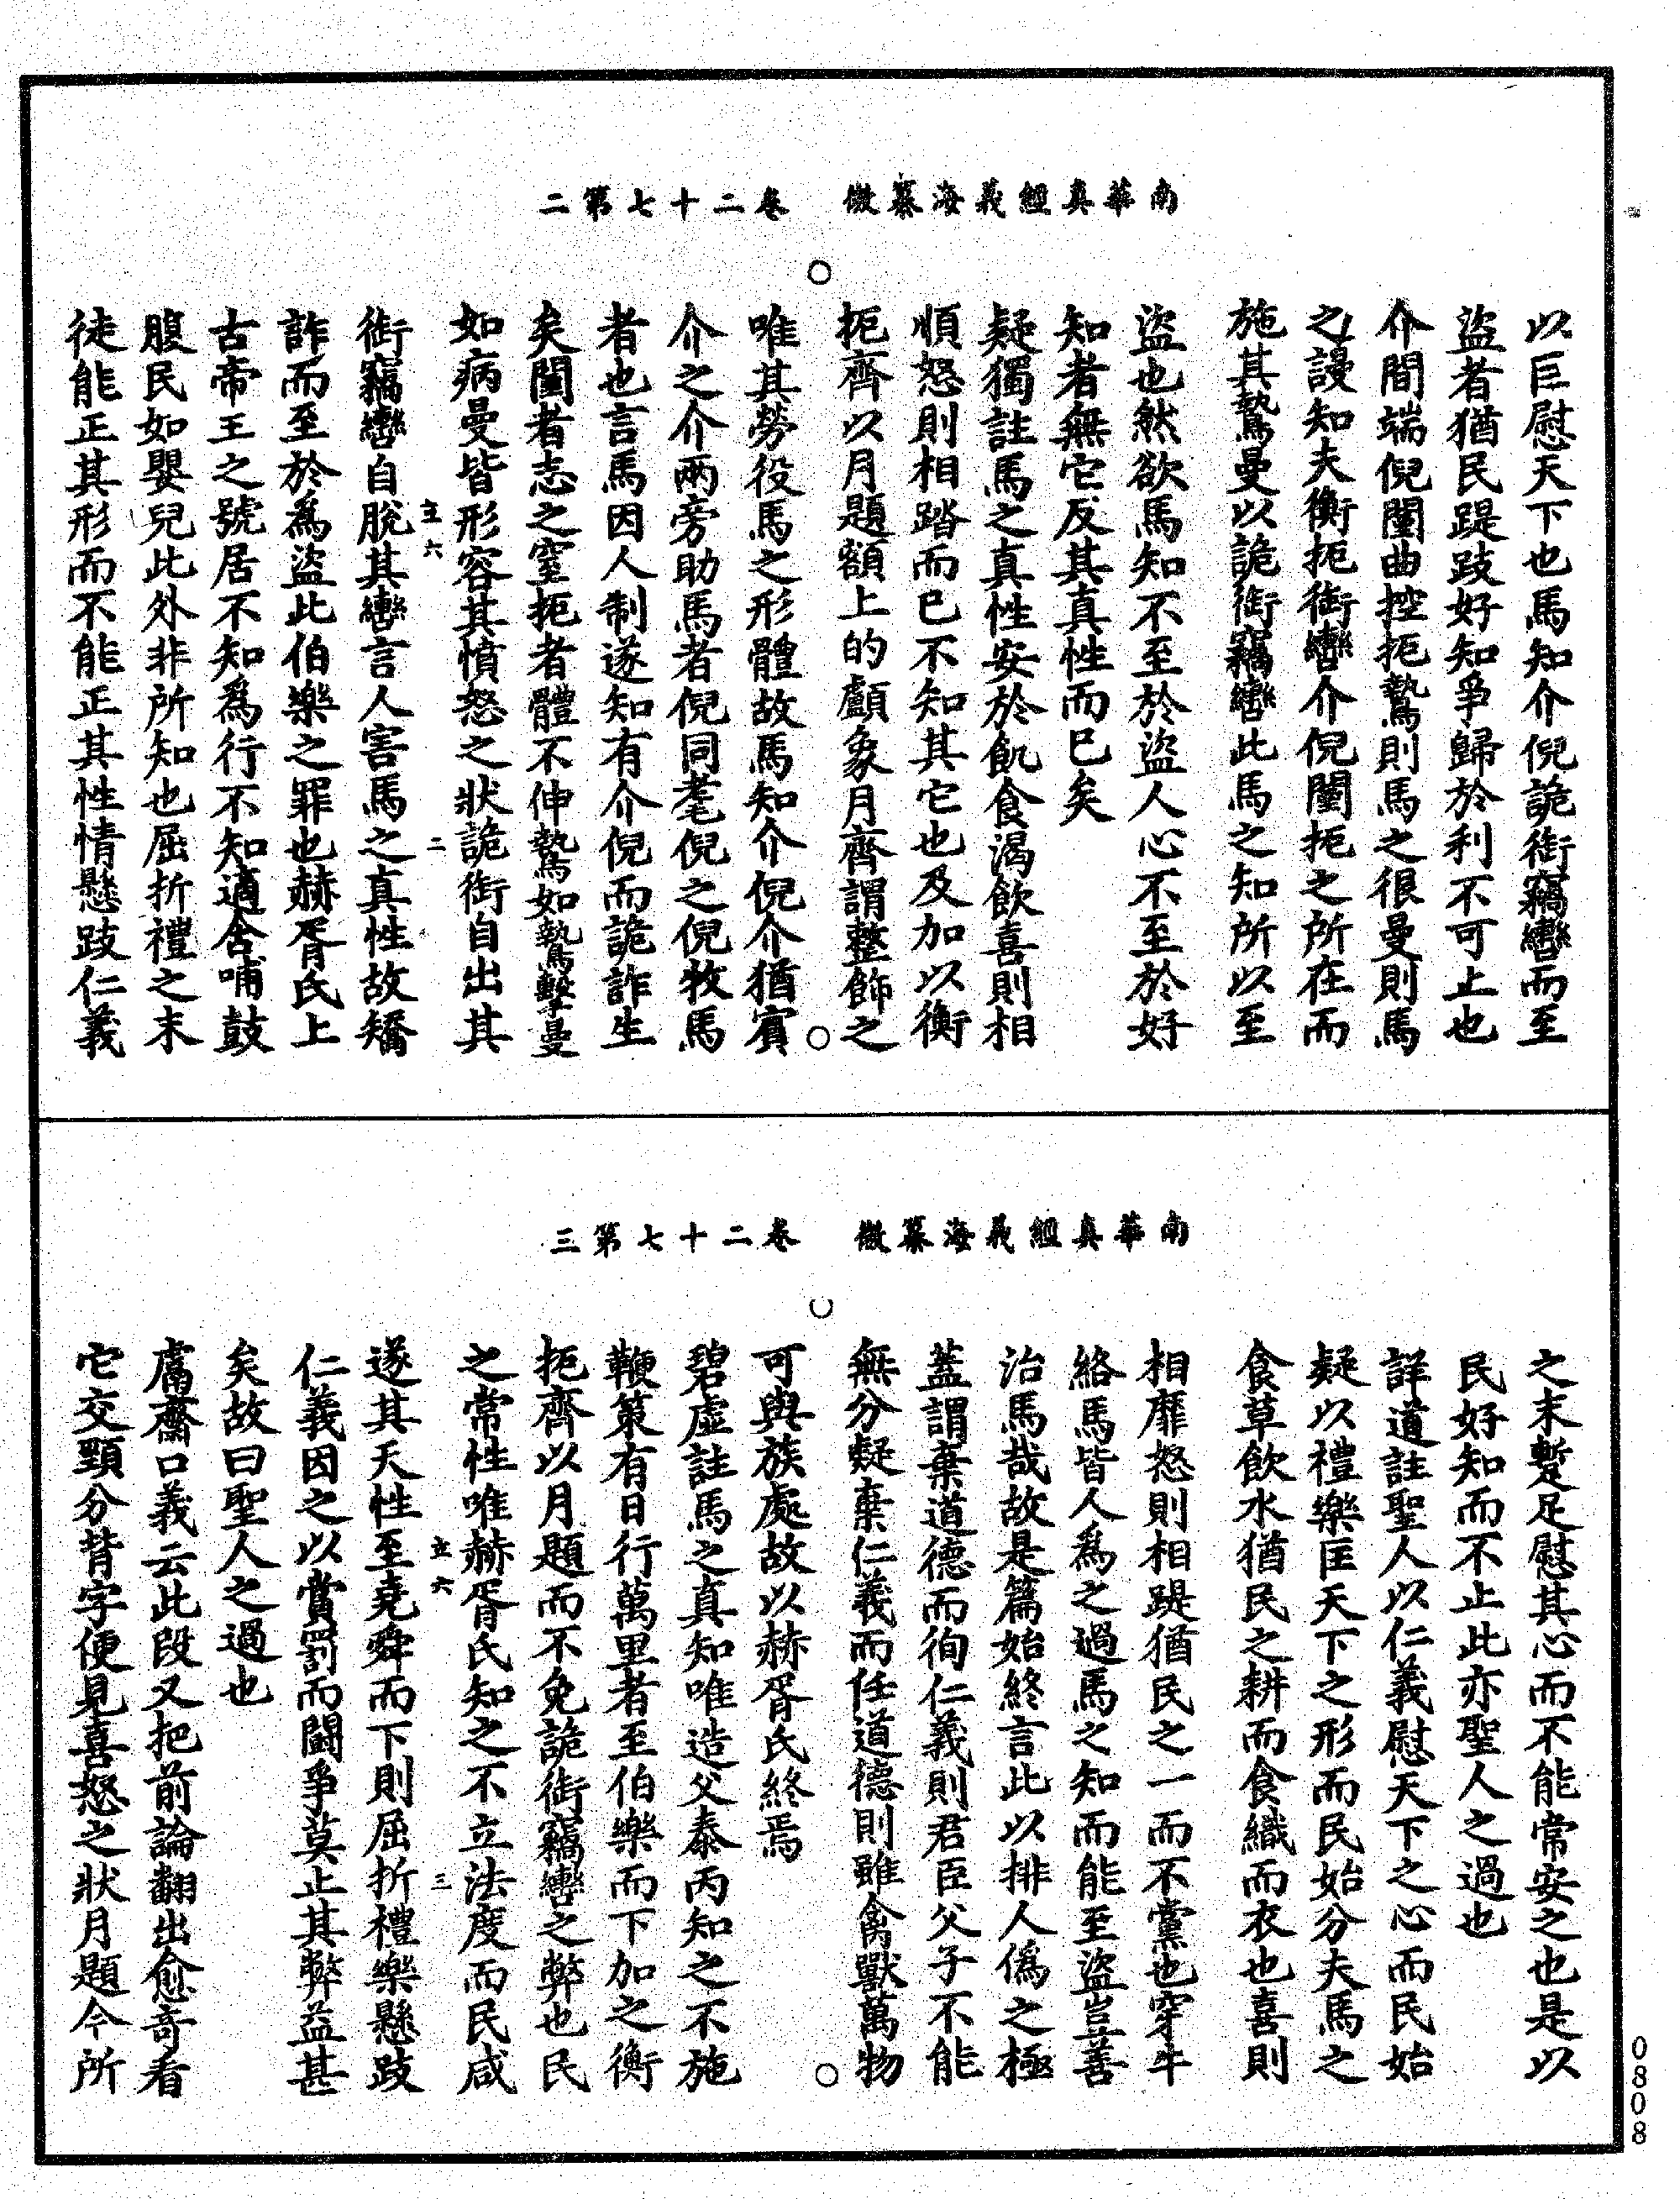 南華真經義海纂微　卷二十七第二
以巨慰天下也馬知介倪詭銜竊轡而至
盜者猶民踶跂好知爭歸於利不可止也
介間端倪闉曲控扼鷙則馬之很曼則馬
之謾知夫衡扼銜轡介倪闉扼之所在而
施其鷙曼以詭銜竊轡此馬之知所以至
盜也然欲馬知不至於盜人心不至於好
知者無它反其真性而已矣
疑獨註馬之真性安於飢食渴飲喜則相
順怒則相踏而已不知其它也及加以衡
扼齊以月題額上的顱象月齊謂整飾之
唯其勞役馬之形體故馬知介倪介猶賓
介之介兩旁助馬者倪同耄倪之倪牧馬
者也言馬因人制遂知有介倪而詭詐生
矣闉者志之窒扼者體不伸鷙如鷙擊曼
如病曼皆形容其憤怒之狀詭銜自出其
銜竊轡自脫其轡言人害馬之真性故矯
詐而至於為盜此伯樂之罪也赫胥氏上
古帝王之號居不知為行不知適含哺鼓
腹民如嬰兒此外非所知也屈折禮之末
徒能正其形而不能正其性情懸跂仁義
立六
二
南華真經義海纂微　卷二十七第三
之末蹔足慰其心而不能常安之也是以
民好知而不止此亦聖人之過也
詳道註聖人以仁義慰天下之心而民始
疑以禮樂匡天下之形而民始分夫馬之
食草飲水猶民之耕而食織而衣也喜則
相靡怒則相踶猶民之一而不黨也穿牛
絡馬皆人為之過馬之知而能至盜豈善
治馬哉故是篇始終言此以排人偽之極
蓋謂棄道德而徇仁義則君臣父子不能
無分疑棄仁義而任道德則雖禽獸萬物
可與族處故以赫胥氏終焉
碧虛註馬之真知唯造父泰丙知之不施
鞭策有日行萬里者至伯樂而下加之衡
扼齊以月題而不免詭銜竊轡之弊也民
之常性唯赫胥氏知之不立法度而民咸
遂其天性至堯舜而下則屈折禮樂懸跂
仁義因之以賞罰而鬪爭莫止其弊益甚
矣故曰聖人之過也
鬳齋口義云此段又把前論翻出愈奇看
它交頸分背字便見喜怒之狀月題今所
立六
三
0808